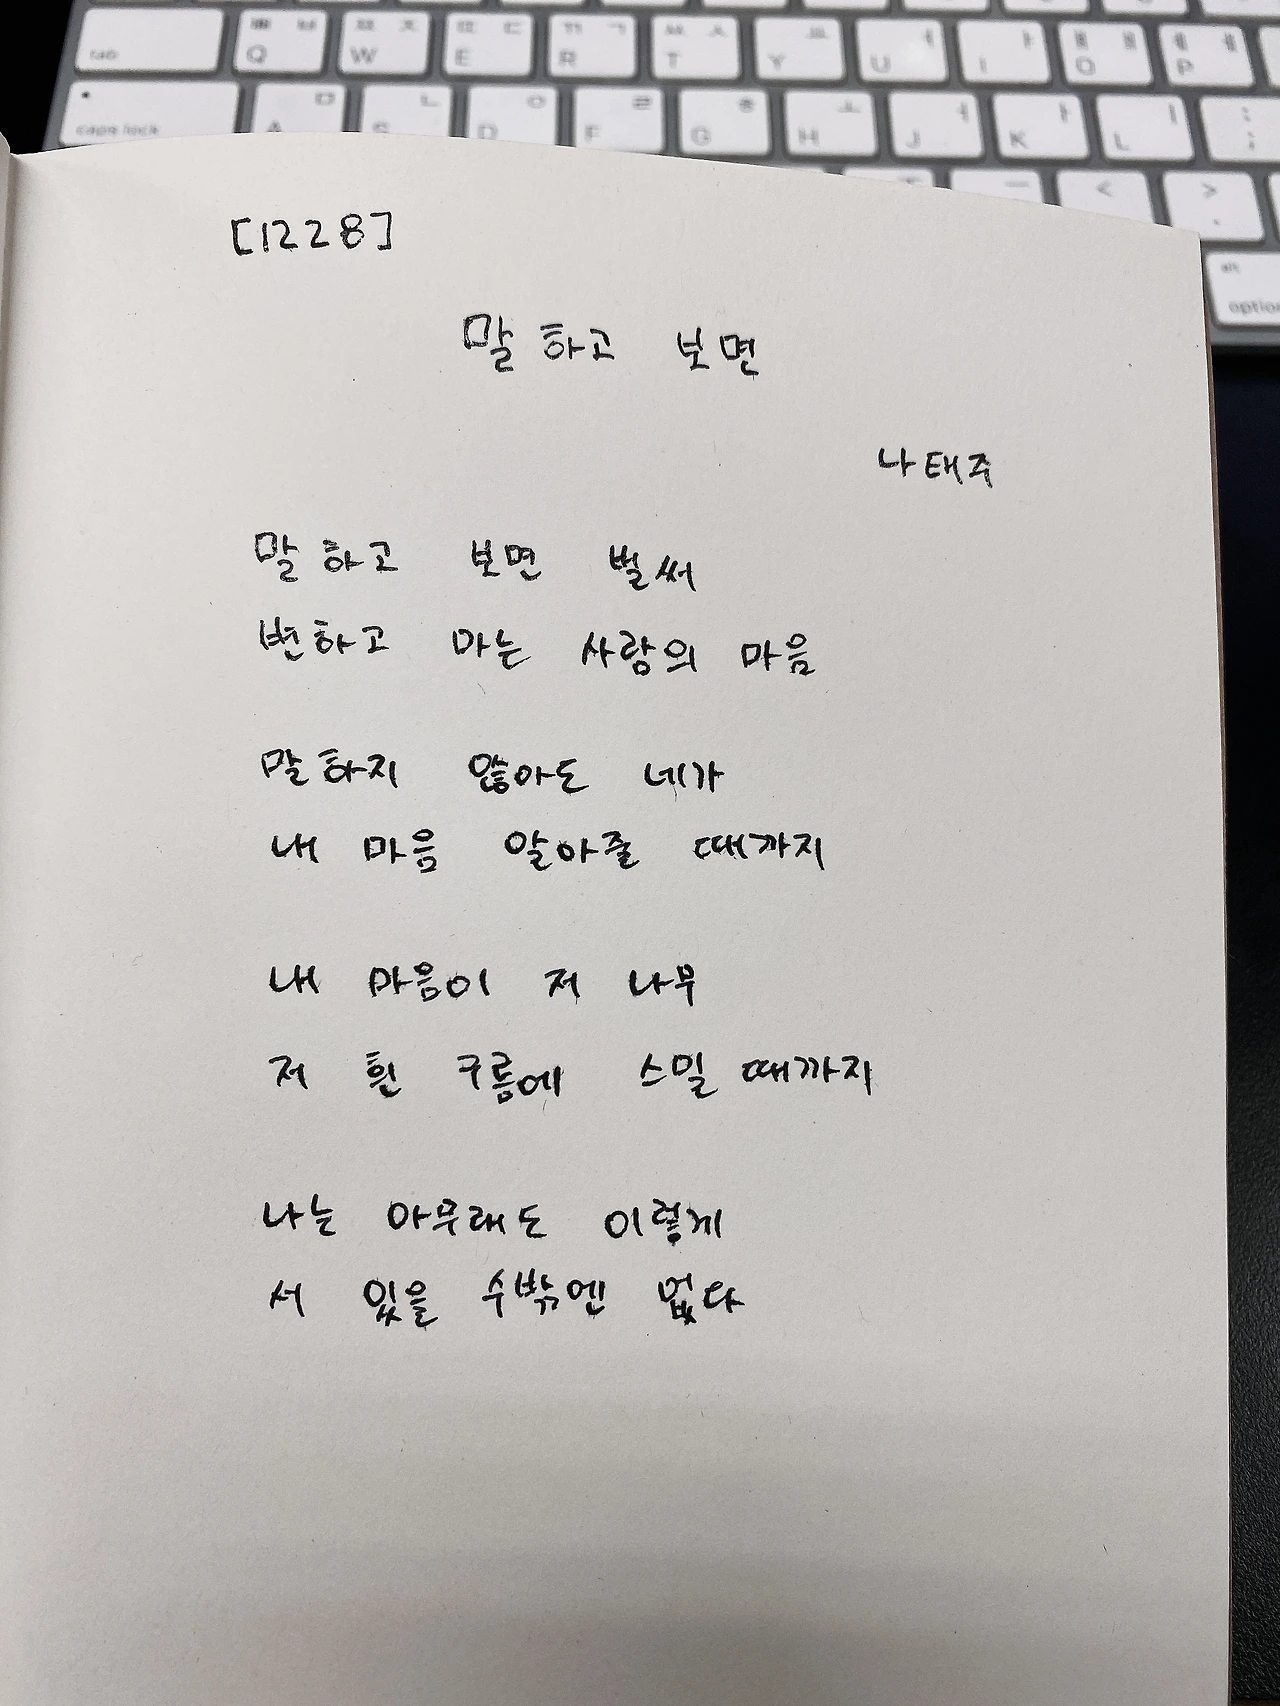 tab ㅃ ㅂ Q ㅉ ㅈ W ㄸ ㄷ E ㄲ ㄱ R ㅆ ㅅ T ㅛ Y ㅕ U ㅑ I ㅒ ㅐ O ㅖ ㅔ P
caps lock ㅁ A ㄴ S ㅇ D ㄹ F ㅎ G ㅗ H ㅓ J ㅏ K ㅣ L : ;
ㅜ ㅡ < > .
alt
option
[1228]
말하고 보면
나태주
말하고 보면 벌써
변하고 마는 사람의 마음
말하지 않아도 네가
내 마음 알아줄 때까지
내 마음이 저 나무
저 흰 구름에 스밀 때까지
나는 아무래도 이렇게
서 있을 수밖엔 없다